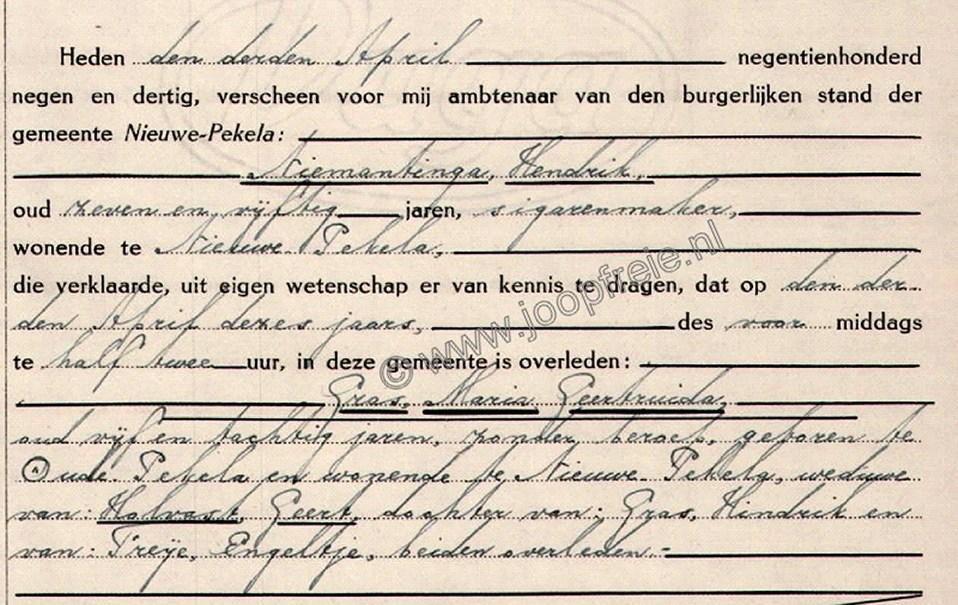 Heden den derden April negentienhonderd
negen en dertig, verscheen voor mij ambtenaar van den burgerlijken stand der
gemeente Nieuwe-Pekela:
Niemantinga, Hendrik,
oud zeven en vijftig jaren, sigarenmaker,
wonende te Nieuwe-Pekela,
die verklaarde, uit eigen wetenschap er van kennis te dragen, dat op den der-
den April dezes jaars, des voor middags
te half twee uur, in deze gemeente is overleden:
Gras, Maria Geertruida,
oud vijf en tachtig jaren, zonder beroep, geboren te
Oude-Pekela en wonende te Nieuwe-Pekela, weduwe
van: Holvast, Geert, dochter van: Gras, Hindrik en
van: Freÿe, Engeltje, beiden overleden.-
© www.joopfreie.nl